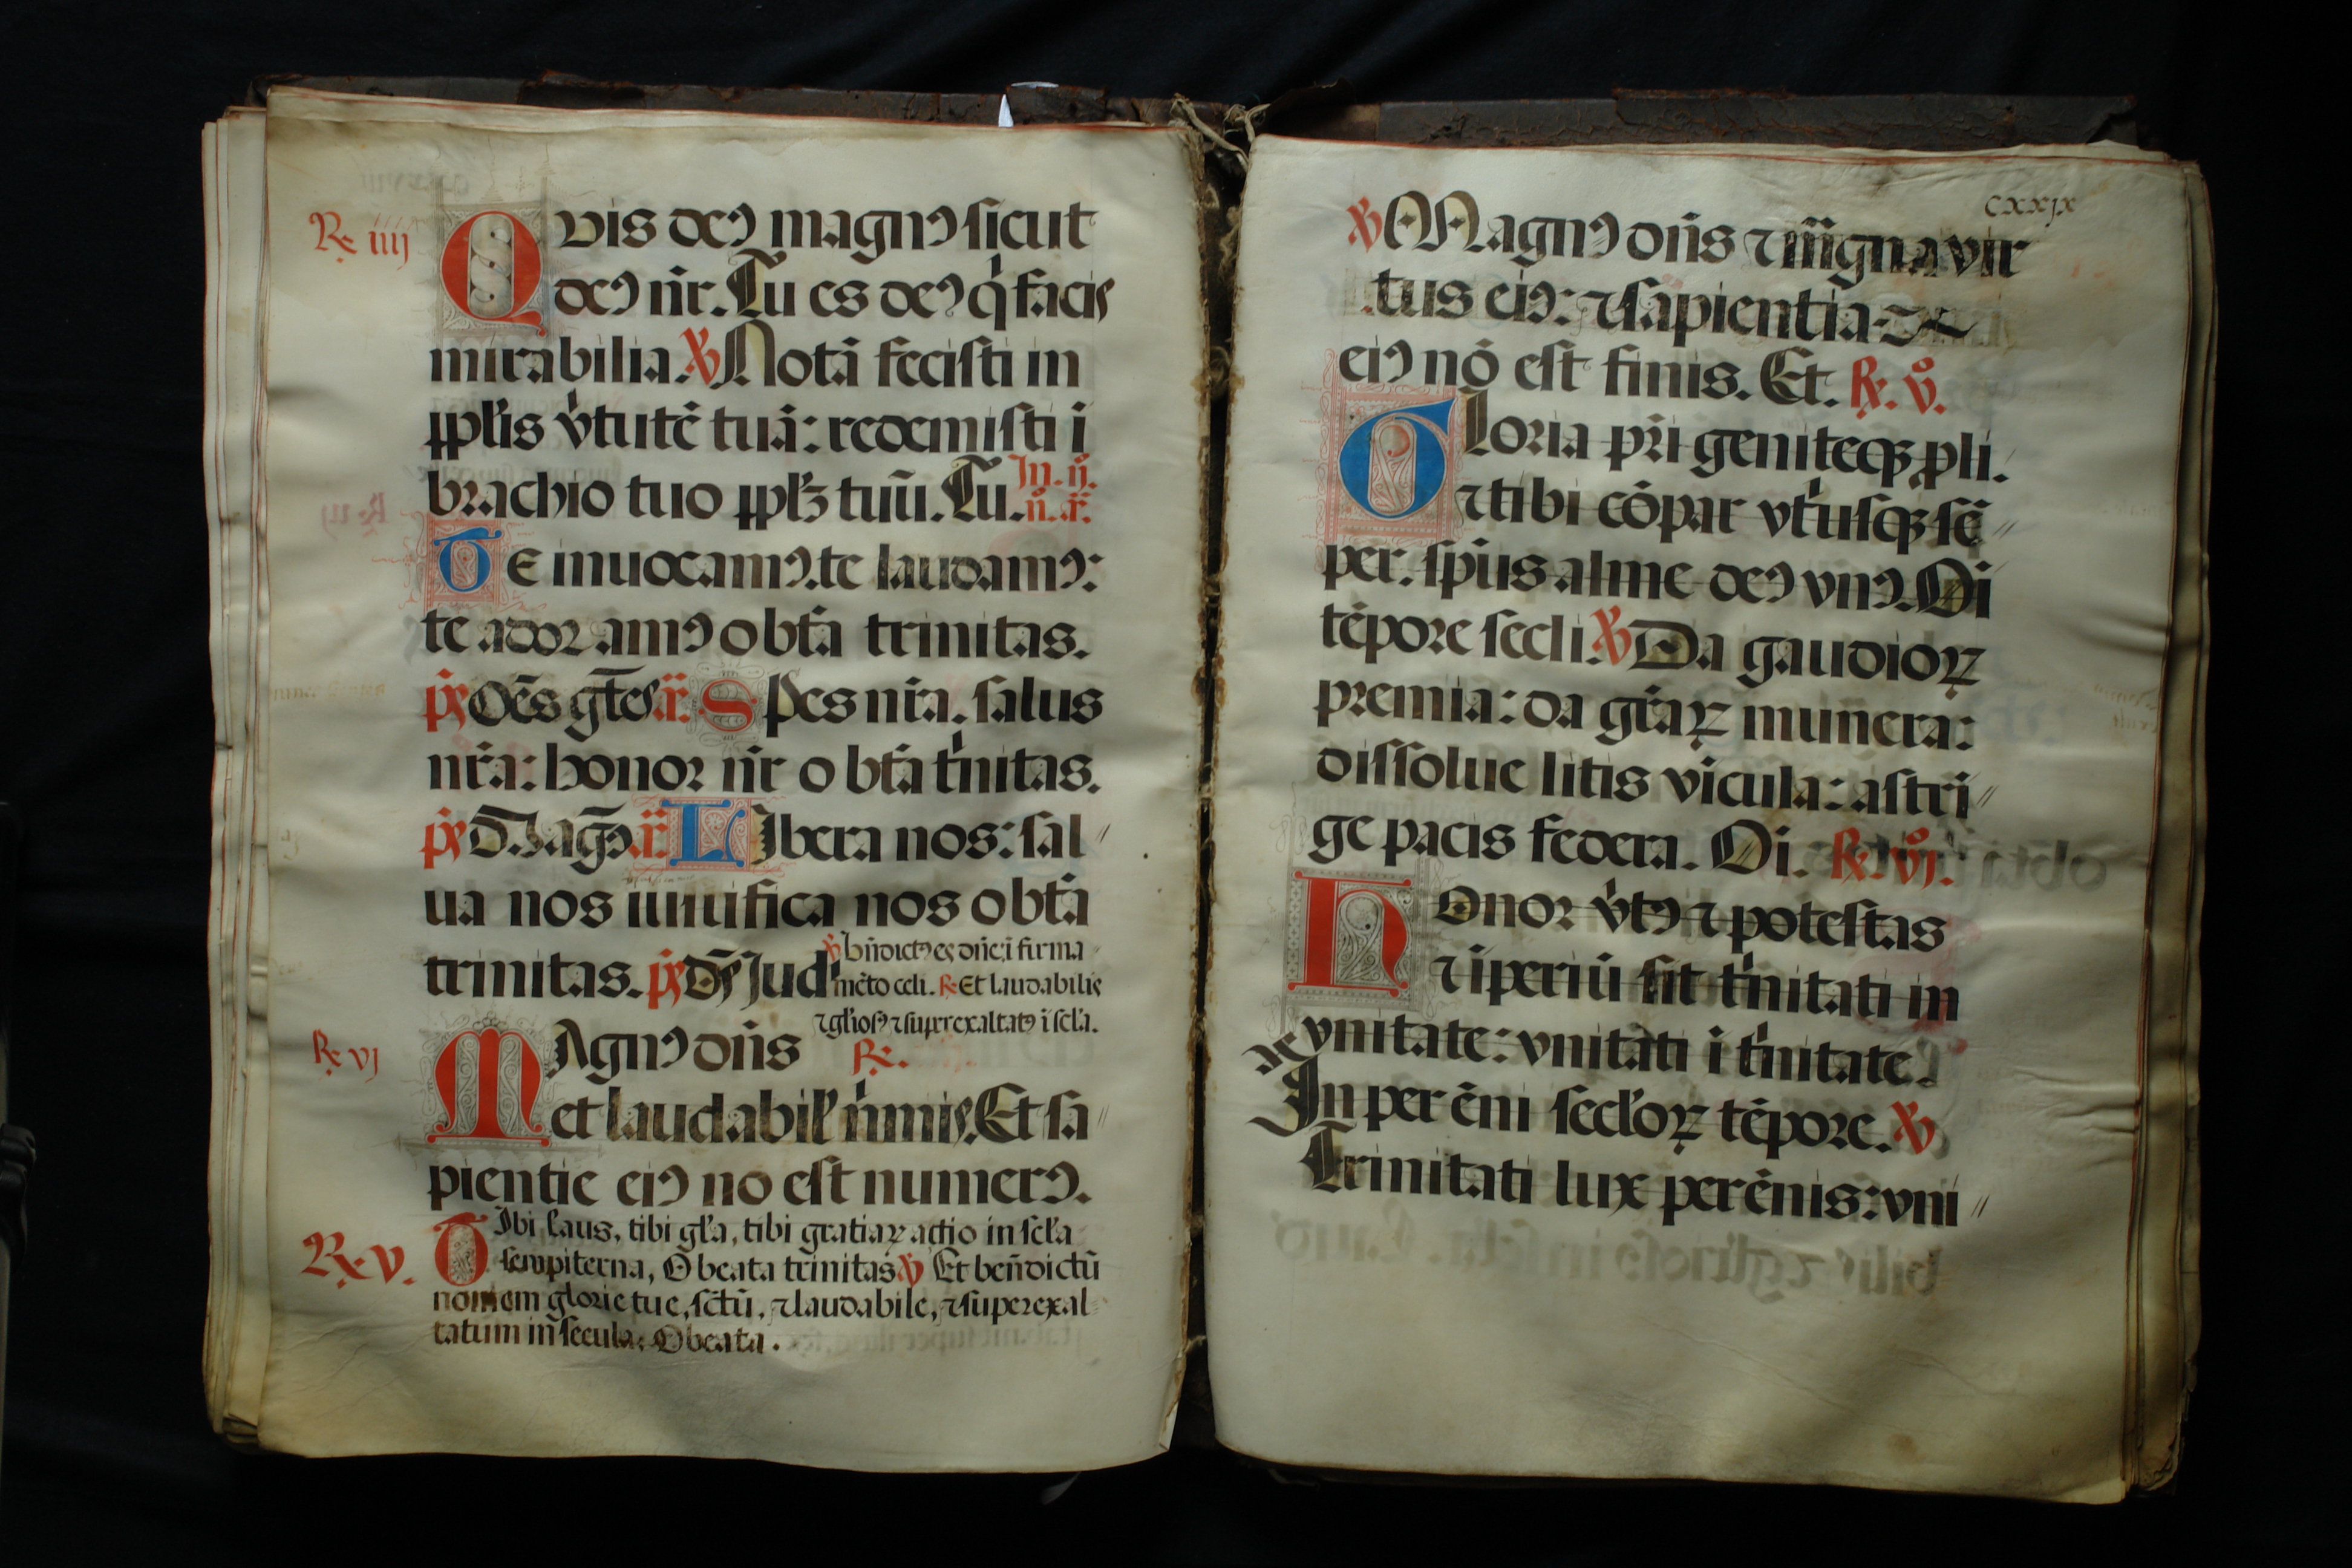 R̃ iiij Quis deꝰ magnꝰ sicut
deꝰ nr̄. Tu es deꝰ q̇ facis
mirabilia. ℣ Notā fecisti in
pp̄lis v̇tutē tuā: redemisti i
brachio tuo pp̄lꝫ tuū. Tu. In. ij.
n̊. añ.
Te inuocamꝰ. te laudamꝰ:
te adoramꝰ o btā trinitas.
p̄s Oēs gtes. añ. Spes nrā. salus
nrā: honor nr̄ o btā tn̍itas.
p̄s Magꝰ añ. Libera nos: sal//
ua nos uiuifica nos o btā
trinitas. p̄s Ds Jud
℣ bñdictꝰ es dñe i firma//
mēto celi. ℟ Et laudabilis
⁊ gl̄iosꝰ ⁊ superexaltatꝰ i sel̄a.
℟ vj Magnꝰ dñs ℟.
et laudabil' n̍imis. Et sa//
pientie eiꝰ no est numerꝰ.
℟. v. Tibi laus, tibi gl̄a, tibi gratiaꝝ actio in sel̄a
sempiterna, O beata trinitas ℣ Et beñdictū
nomem glorie tue, sctū, ⁊ laudabile, ⁊ superexal
tatum in secula: O beata.
cxxjx
℣ Magnꝰ dñs ⁊ magna vir
tus eiꝰ: ⁊ sapientia
eiꝰ nō est finis. Et. ℟. v̊.
Gloria pr̄i geniteqꝫ pli.
⁊ tibi cōpar vt̍usqꝫ sē//
per. sp̄us alme deꝰ vnꝰ. Oi
tēpore secli. ℣ Da gaudioꝝ
premia: da gr̄aꝝ munera:
dissolue litis vicula: astri//
ge pacis federa. Oi. ℟. vj.
Honor v̇tꝰ ⁊ potestas
⁊ iperiū sit tn̍itati in
vnitate: vnitati i tn̍itate.
In per ēni secl'oꝝ tēpore. ℣
Trinitati lux perēnis: vni//